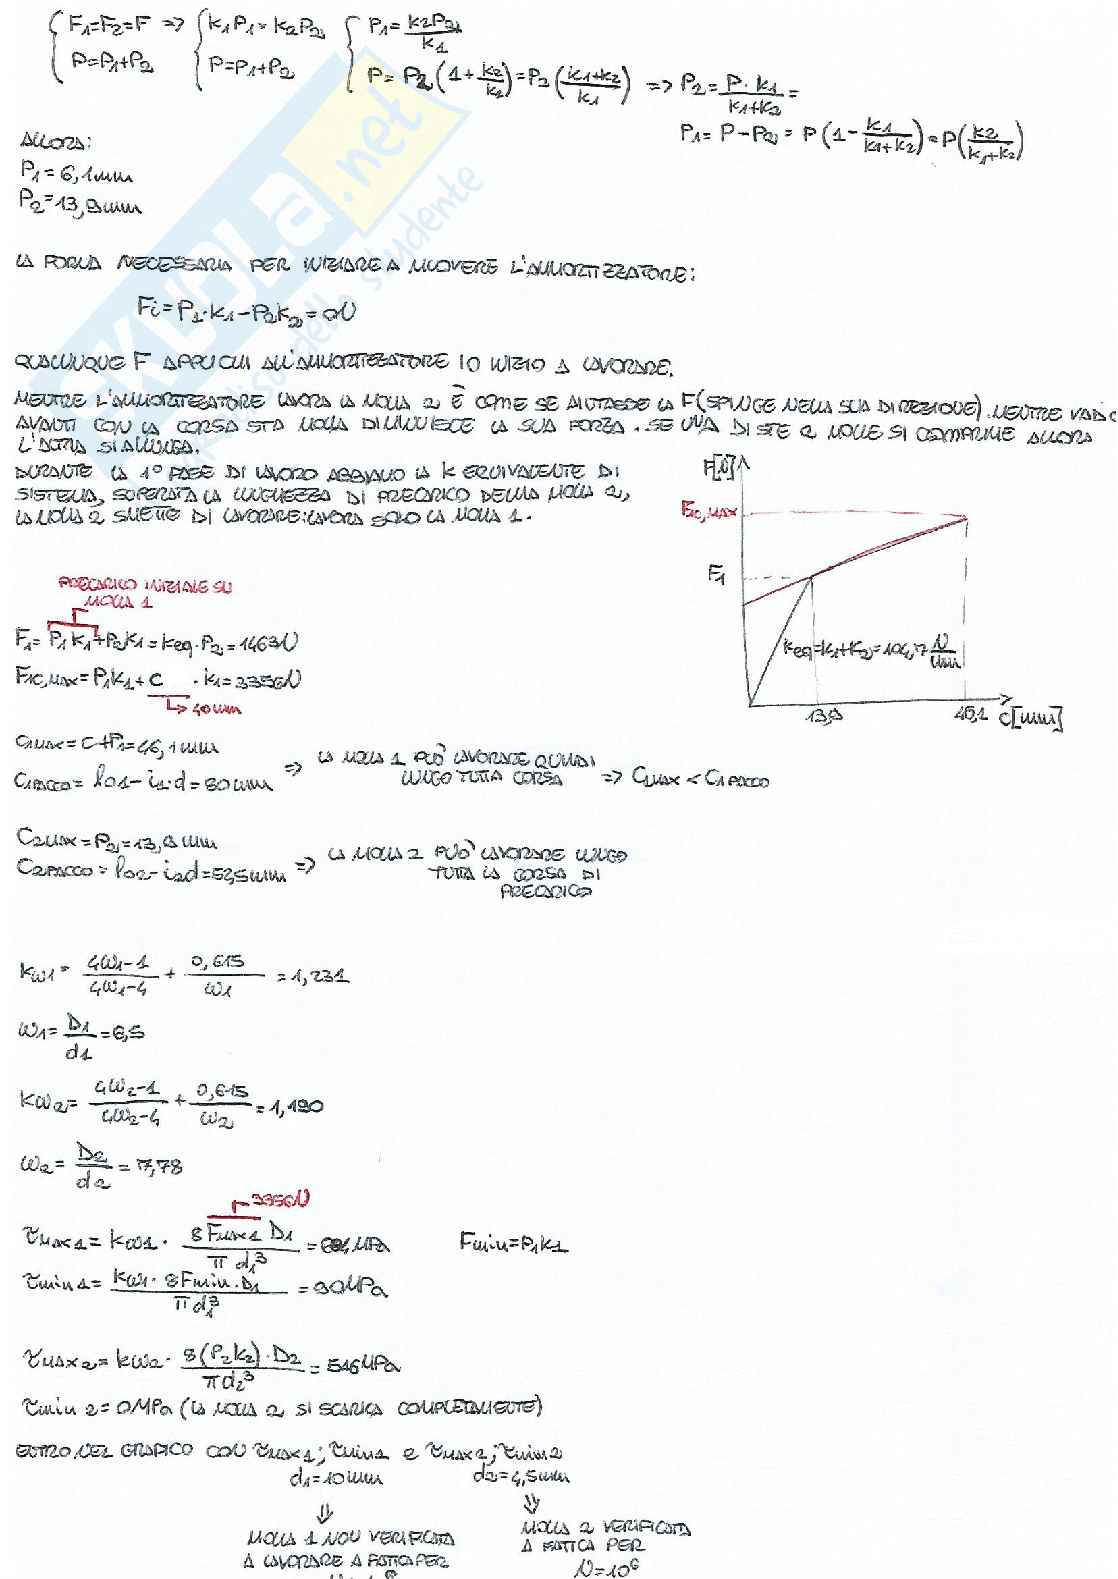 { F1=F2=F => { k1P1=k2P2 { P1=k2P2/k1
P=P1+P2 P=P1+P2 P=P2(1+k2/k2)=P2(k1+k2/k1) => P2=P·k1/k1+k2=
P1=P-P2=P(1-k1/k1+k2)=P(k2/k1+k2)
ALLORA:
P1=6,1mm
P2=13,9mm
LA FORZA NECESSARIA PER INIZIARE A MUOVERE L'AMMORTIZZATORE:
Fi=P1·k1-P2k2=0N
QUALUNQUE F APPLICHI ALL'AMMORTIZZATORE IO INIZIO A LAVORARE.
MENTRE L'AMMORTIZZATORE LAVORA LA MOLLA 2 È COME SE AIUTASSE LA F(SPINGE NELLA SUA DIREZIONE). MENTRE VADO
AVANTI CON LA CORSA STA MOLLA DIMINUISCE LA SUA FORZA. SE UNA DI STE 2 MOLLE SI COMPRIME ALLORA
L'ALTRA SI ALLUNGA.
DURANTE LA 1° FASE DI LAVORO ABBIAMO LA K EQUIVALENTE DI
SISTEMA, SUPERATA LA LUNGHEZZA DI PRECARICO DELLA MOLLA 2,
LA MOLLA 2 SMETTE DI LAVORARE:LAVORA SOLO LA MOLLA 1.
F[N]
F1C,MAX
F1
keq=k1+k2=104,7 N/mm
13,9
46,1
C[mm]
PRECARICO INIZIALE SU
MOLLA 1
F1=P1k1+P2k1=keq·P2=1463N
F1C,MAX=P1k1+C ·k1=3356N
40mm
C1MAX=C+P1=46,1mm
C1PACCO=l01-i1·d=80mm => LA MOLLA 1 PUÒ LAVORARE QUINDI LUNGO TUTTA CORSA => C1MAX<C1PACCO
C2MAX=P2=13,9mm
C2PACCO=l02-i2d=52,5mm => LA MOLLA 2 PUÒ LAVORARE LUNGO
TUTTA LA CORSA DI
PRECARICO
kω1=4ω1-1/4ω1-4+0,615/ω1=1,231
ω1=D1/d1=6,5
kω2=4ω2-1/4ω2-4+0,615/ω2=1,190
ω2=D2/d2=7,78
3356N
τMAX1=kω1·8FMAX1 D1/π d1³= MPa Fmin=P1k1
τmin1=kω1·8Fmin·D1/π d1³=90MPa
τMAX2=kω2·8(P2k2)·D2/πd2³=546MPa
τmin2=0MPa (LA MOLLA 2 SI SCARICA COMPLETAMENTE)
ENTRO NEL GRAFICO CON τMAX1;τmin1 e τMAX2;τmin2
d1=10mm d2=4,5mm
MOLLA 1 NON VERIFICATA
A LAVORARE A FATICA PER
MOLLA 2 VERIFICATA
A FATICA PER
N=10⁶
SKUOLA.net
dello studente